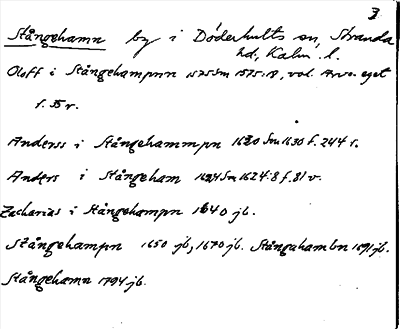 3
Stångehamn by i Döderhults sn, Stranda
hd, Kalm. l.
Oloff i Stångehampnn 1575 Sm 1575:18, vol. Arv. eget
f. 35 v.
Anderss i Stångehammpn 1630 Sm 1630 f. 244 r.
Anders i Stångeham 1624 Sm 1624:8 f. 81 v.
Zacharias i Stångehampn 1640 jb.
Stångehampn 1650 jb, 1670 jb. Stångahambn 1691 jb.
Stångehamn 1794 jb.